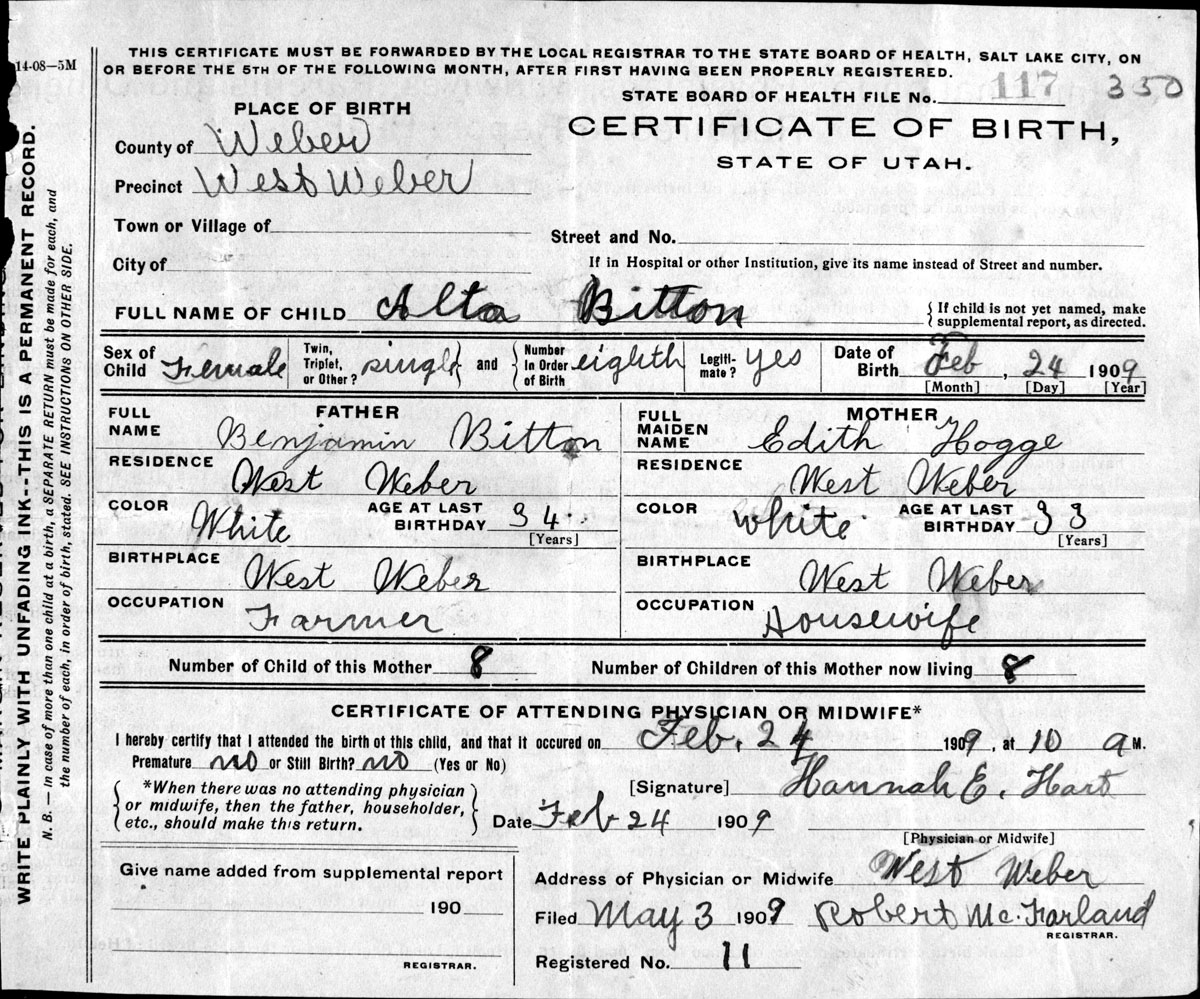 14-08—5M
THIS CERTIFICATE MUST BE FORWARDED BY THE LOCAL REGISTRAR TO THE STATE BOARD OF HEALTH, SALT LAKE CITY, ON
OR BEFORE THE 5TH OF THE FOLLOWING MONTH, AFTER FIRST HAVING BEEN PROPERLY REGISTERED.
STATE BOARD OF HEALTH FILE No. 117 350
CERTIFICATE OF BIRTH,
STATE OF UTAH.
PLACE OF BIRTH
County of Weber
Precinct West Weber
Town or Village of
Street and No.
City of
If in Hospital or other Institution, give its name instead of Street and number.
FULL NAME OF CHILD Alta Bitton
{If child is not yet named, make
{supplemental report, as directed.
Sex of
Child Female
Twin,
Triplet,
or Other? single
and
Number
In Order
of Birth eighth
Legiti-
mate? yes
Date of
Birth Feb, 24 1909
[Month] [Day] [Year]
FATHER
FULL
NAME Benjamin Bitton
RESIDENCE West Weber
COLOR White
AGE AT LAST
BIRTHDAY 34
[Years]
BIRTHPLACE West Weber
OCCUPATION Farmer
MOTHER
FULL
MAIDEN
NAME Edith Hogge
RESIDENCE West Weber
COLOR white
AGE AT LAST
BIRTHDAY 33
[Years]
BIRTHPLACE West Weber
OCCUPATION Housewife
Number of Child of this Mother 8
Number of Children of this Mother now living 8
CERTIFICATE OF ATTENDING PHYSICIAN OR MIDWIFE*
I hereby certify that I attended the birth of this child, and that it occured on Feb. 24 1909, at 10 a M.
Premature no or Still Birth? no (Yes or No)
*When there was no attending physician
or midwife, then the father, householder,
etc., should make this return.
[Signature] Hannah E. Hart
Date Feb 24 1909
[Physician or Midwife]
Give name added from supplemental report
190
REGISTRAR.
Address of Physician or Midwife West Weber
Filed May 3 1909 Robert McFarland
REGISTRAR.
Registered No. 11
WRITE PLAINLY WITH UNFADING INK--THIS IS A PERMANENT RECORD.
N. B.—In case of more than one child at a birth, a SEPARATE RETURN must be made for each, and
the number of each, in order of birth, stated. SEE INSTRUCTIONS ON OTHER SIDE.